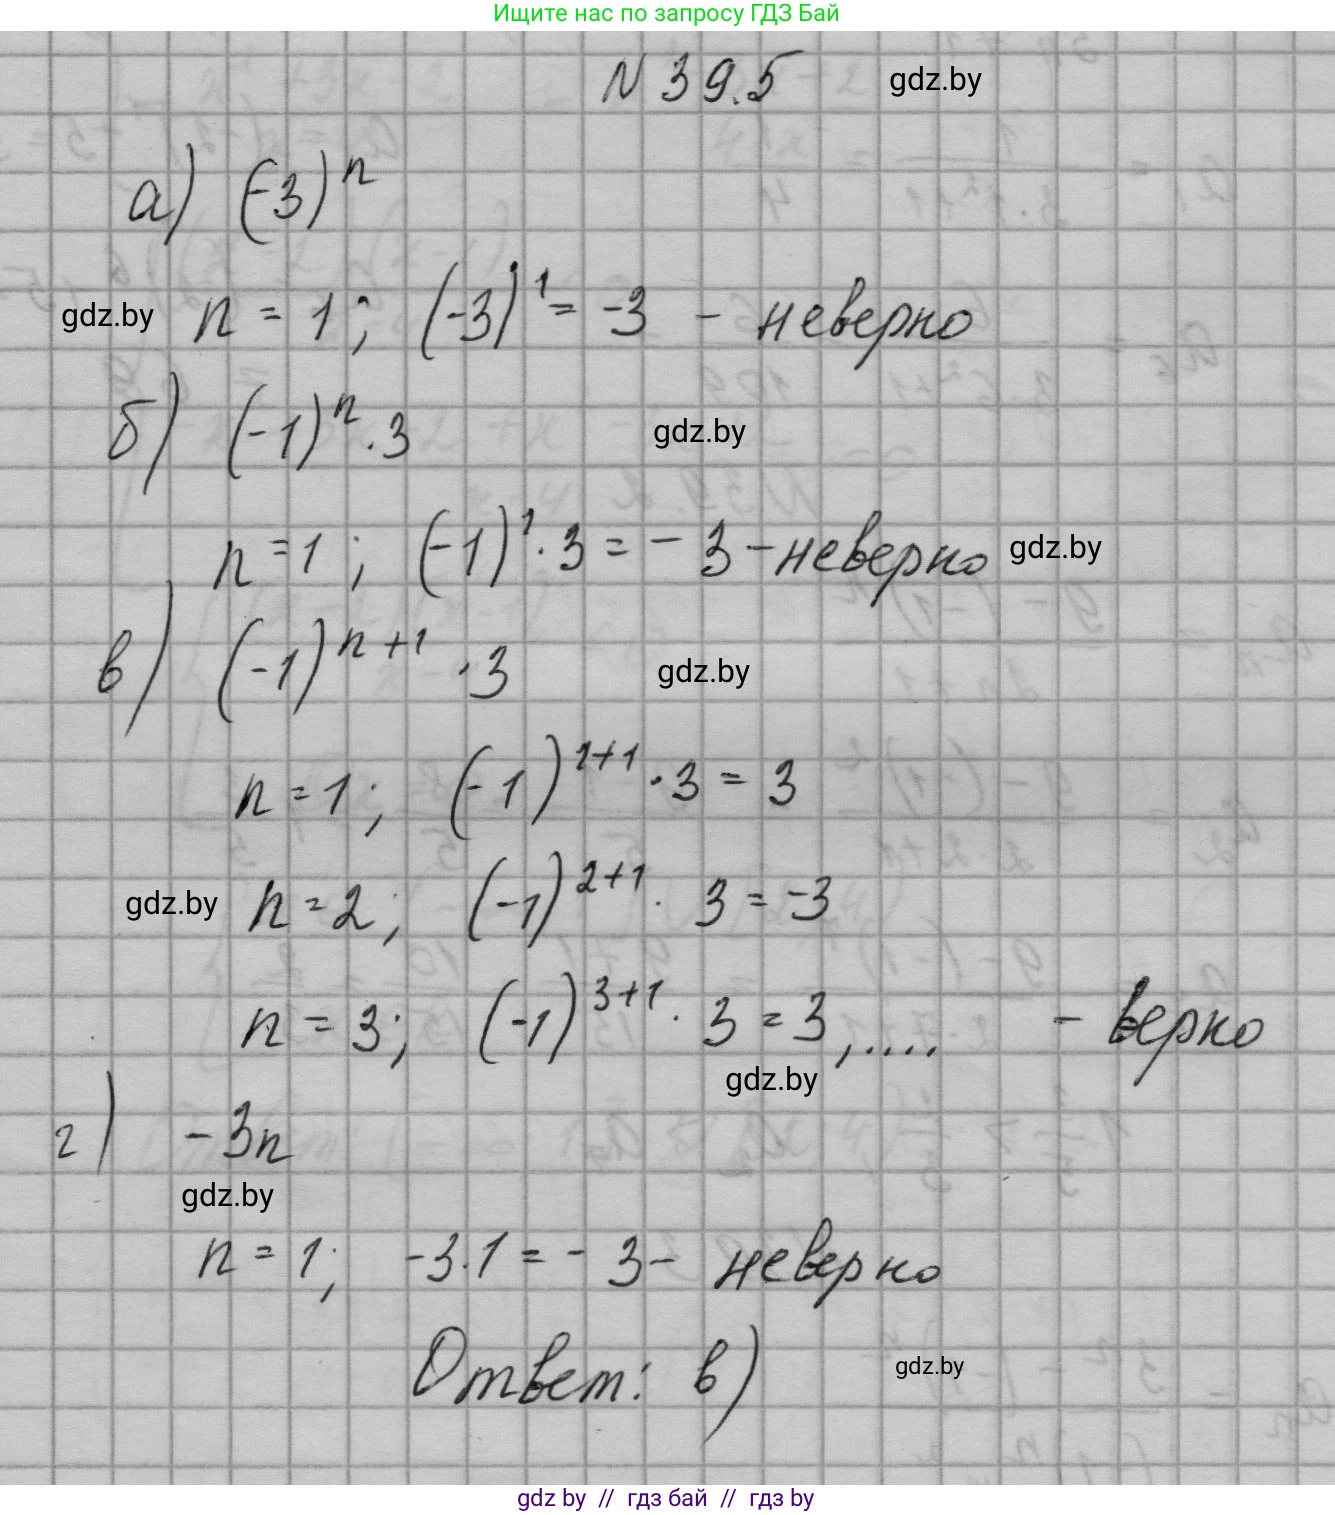 Ищите нас по запросу ГДЗ Бай
N 39.5 gdz.by
а) (-3)^n
gdz.by n = 1; (-3)^1 = -3 - неверно
б) (-1)^n · 3 gdz.by
n = 1; (-1)^1 · 3 = - 3 - неверно gdz.by
в) (-1)^{n+1} · 3 gdz.by
n = 1; (-1)^{1+1} · 3 = 3
gdz.by n = 2; (-1)^{2+1} · 3 = -3
n = 3; (-1)^{3+1} · 3 = 3, .... - верно
gdz.by
г) -3n
gdz.by
n = 1; -3·1 = - 3 - неверно
Ответ: в) gdz.by
gdz by // гдз бай // гдз by